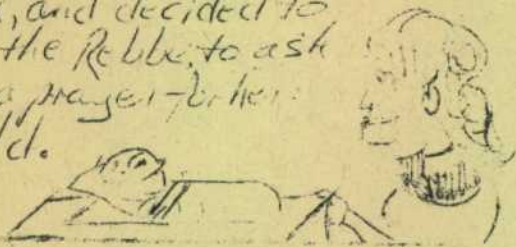 , and decided to
the Rebbe, to ask
a prayer for her
ld.